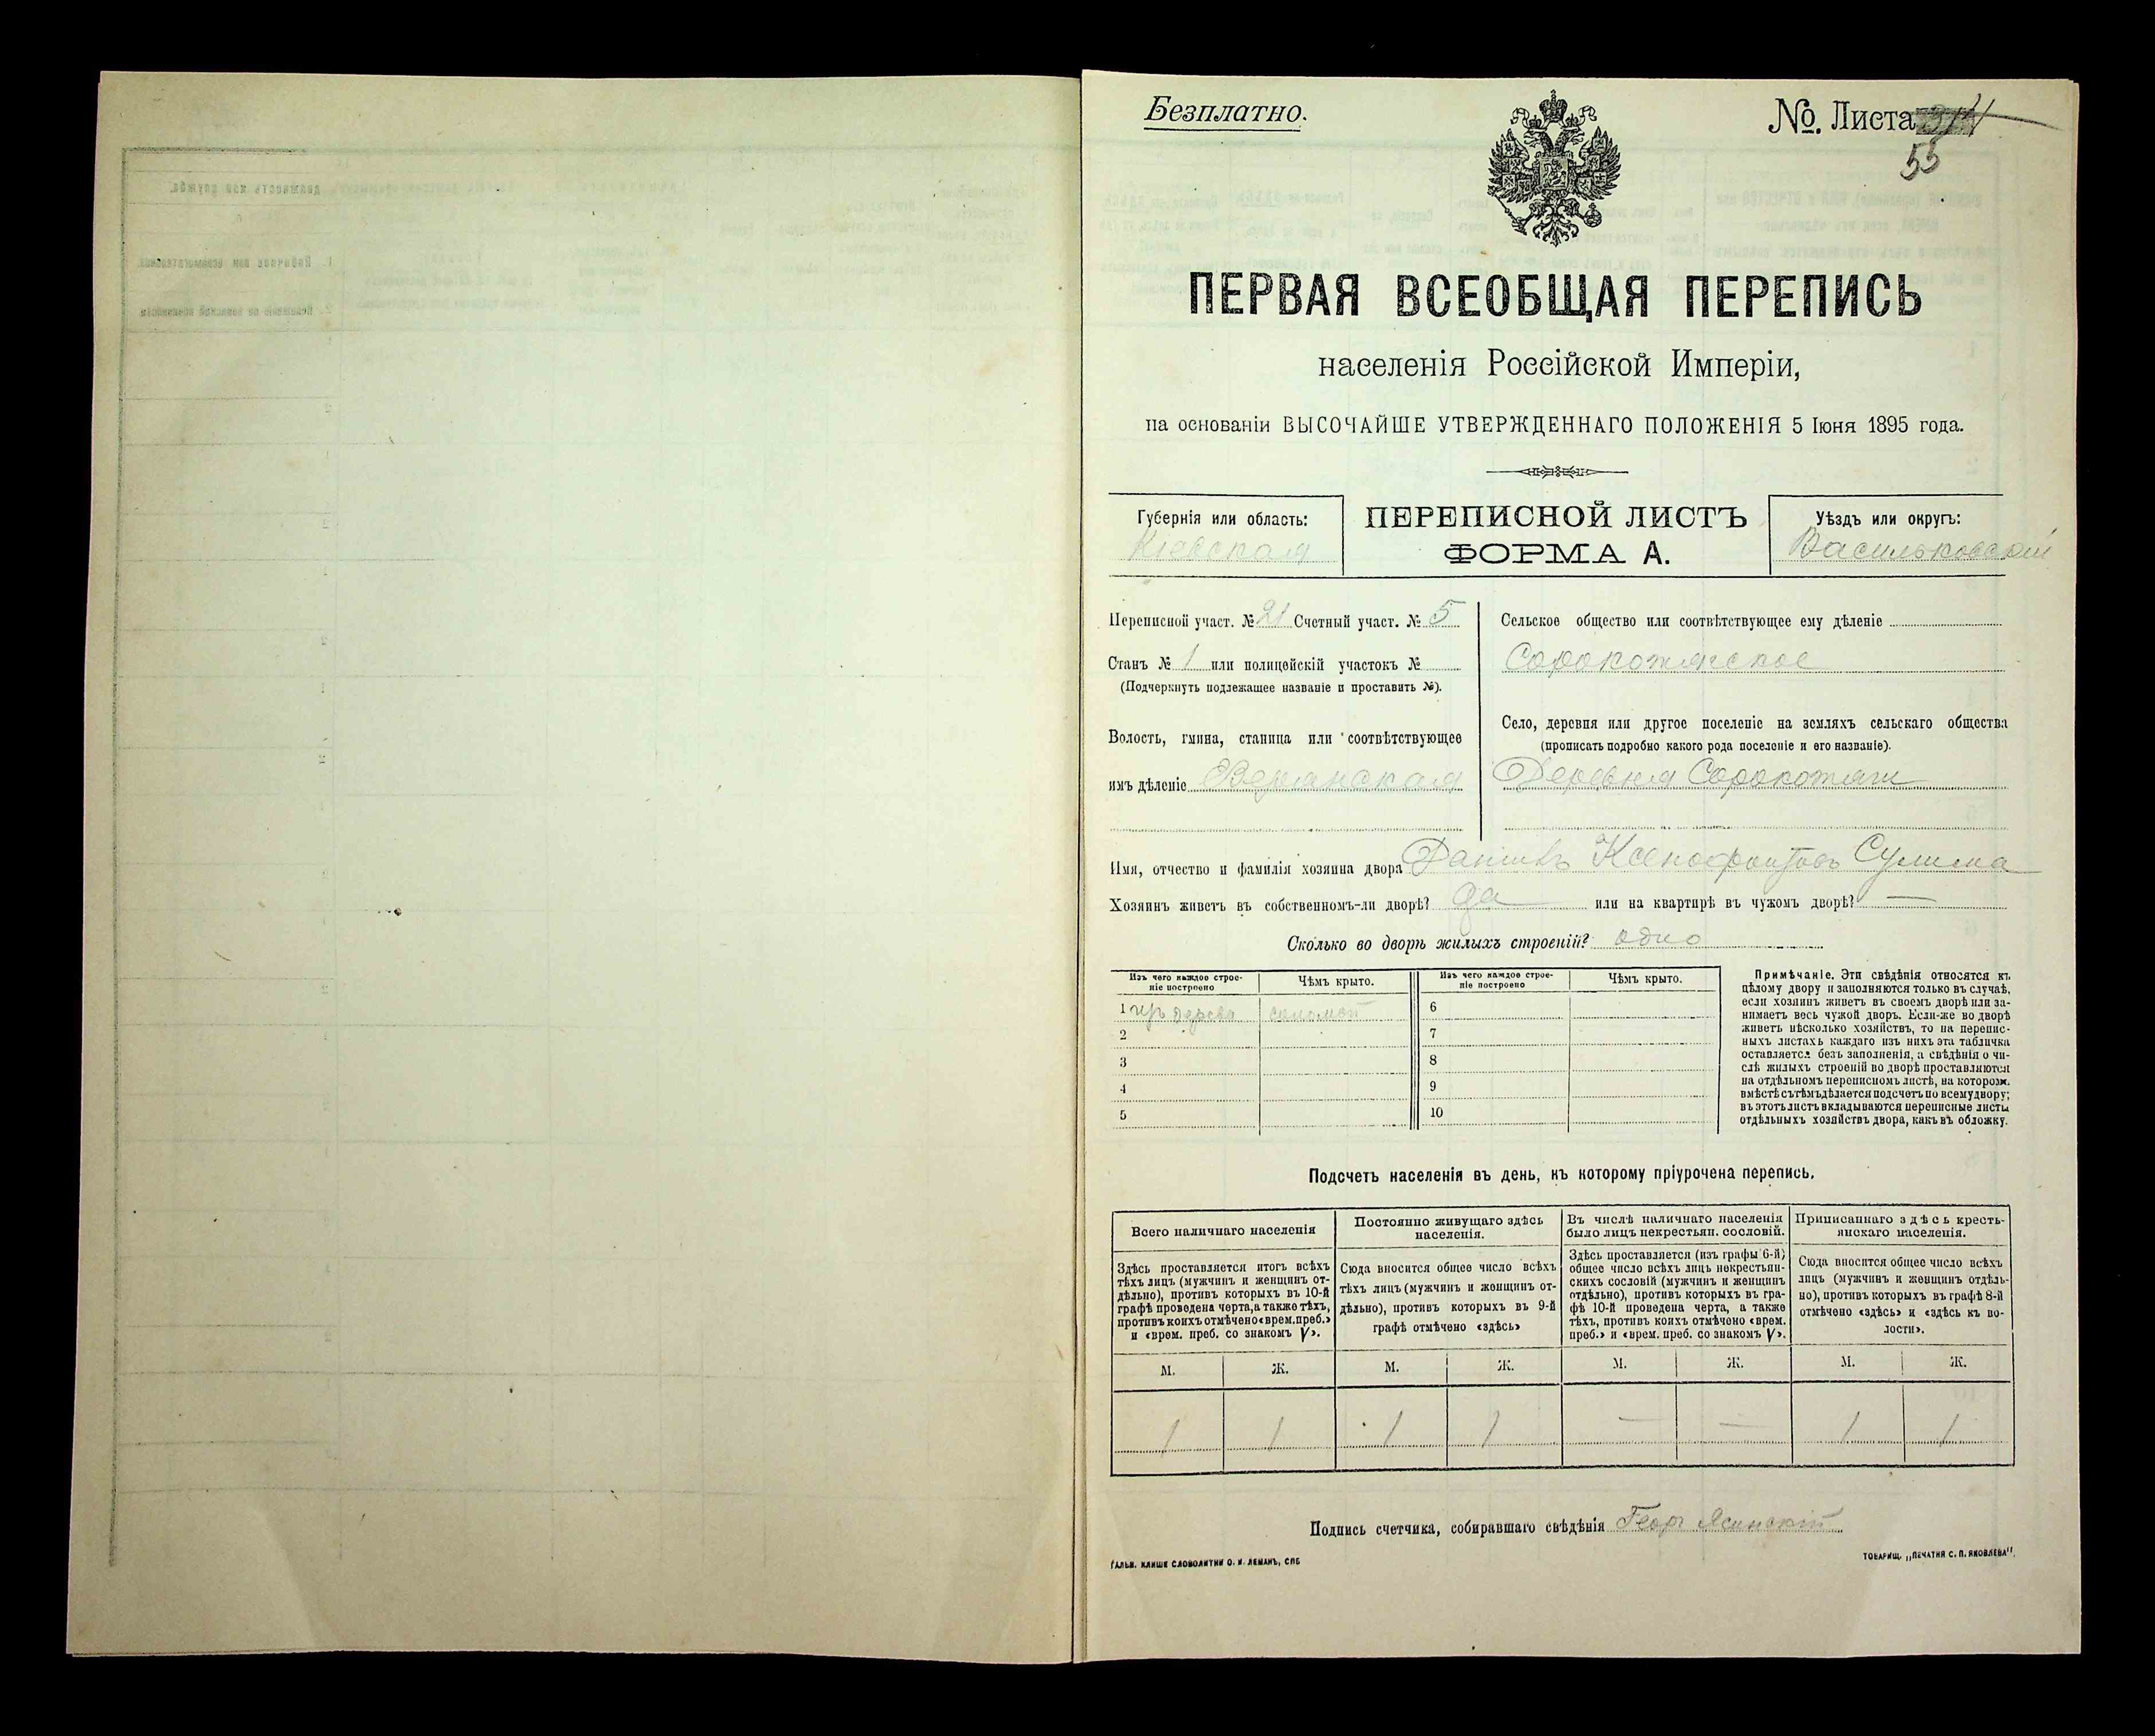 Безплатно.
No. Листа
55
ПЕРВАЯ ВСЕОБЩАЯ ПЕРЕПИСЬ
населенія Россійской Имперіи,
на основаніи ВЫСОЧАЙШЕ УТВЕРЖДЕННАГО ПОЛОЖЕНІЯ 5 Іюня 1895 года.
Губернія или область:
Кіевская
ПЕРЕПИСНОЙ ЛИСТЪ
ФОРМА А.
Уѣздъ или округъ:
Васильковскій
Переписной участ. № 21 Счетный участ. № 5
Станъ № 1 или полицейскій участокъ №
(Подчеркнуть подлежащее названіе и проставить №).
Волость, гмина, станица или соотвѣтствующее
имъ дѣленіе
Сельское общество или соотвѣтствующее ему дѣленіе
Сорокотяжское
Село, деревня или другое поселеніе на земляхъ сельскаго общества
(прописать подробно какого рода поселеніе и его названіе).
Деревня Сорокотяги
Имя, отчество и фамилія хозяина двора Ксенофонтовъ Сулима
Хозяинъ живетъ въ собственномъ-ли дворѣ? да или на квартирѣ въ чужомъ дворѣ? —
Сколько во дворѣ жилыхъ строеній? одно
Изъ чего каждое строе-
ніе построено
Чѣмъ крыто.
Изъ чего каждое строе-
ніе построено
Чѣмъ крыто.
1 изъ дерева соломой 6
2 7
3 8
4 9
5 10
Примѣчаніе. Эти свѣдѣнія относятся къ
цѣлому двору и заполняются только въ случаѣ,
если хозяинъ живетъ въ своемъ дворѣ или за-
нимаетъ весь чужой дворъ. Если-же во дворѣ
живетъ нѣсколько хозяйствъ, то на перепис-
ныхъ листахъ каждаго изъ нихъ эта табличка
оставляется безъ заполненія, а свѣдѣнія о чи-
слѣ жилыхъ строеній во дворѣ проставляются
на отдѣльномъ переписномъ листѣ, на которомъ
вмѣстѣ съ тѣмъ дѣлается подсчетъ по всему двору;
въ этотъ листъ вкладываются переписные листы
отдѣльныхъ хозяйствъ двора, какъ въ обложку.
Подсчетъ населенія въ день, къ которому пріурочена перепись.
Всего наличнаго населенія
Здѣсь проставляется итогъ всѣхъ
тѣхъ лицъ (мужчинъ и женщинъ от-
дѣльно), противъ которыхъ въ 10-й
графѣ проведена черта, а также тѣхъ,
противъ коихъ отмѣчено «врем. преб.»
и «врем. преб. со знакомъ V».
Постоянно живущаго здѣсь
населенія.
Сюда вносится общее число всѣхъ
тѣхъ лицъ (мужчинъ и женщинъ от-
дѣльно), противъ которыхъ въ 9-й
графѣ отмѣчено «здѣсь»
Въ числѣ наличнаго населенія
было лицъ некрестьян. сословій.
Здѣсь проставляется (изъ графы 6-й)
общее число всѣхъ лицъ некрестьян-
скихъ сословій (мужчинъ и женщинъ
отдѣльно), противъ которыхъ въ гра-
фѣ 10-й проведена черта, а также
тѣхъ, противъ коихъ отмѣчено «врем.
преб.» и «врем. преб. со знакомъ V».
Приписаннаго здѣсь кресть-
янскаго населенія.
Сюда вносится общее число всѣхъ
лицъ (мужчинъ и женщинъ отдѣль-
но), противъ которыхъ въ графѣ 8-й
отмѣчено «здѣсь» и «здѣсь къ во-
лости».
М. Ж. М. Ж. М. Ж. М. Ж.
1 1 1 1 — — 1 1
Подпись счетчика, собиравшаго свѣдѣнія Георг Ясинскій
ГАЛЬВ. КЛИШЕ СЛОВОЛИТНИ О. И. ЛЕМАНЪ, СПБ
ТОВАРИЩ. „ПЕЧАТНЯ С. П. ЯКОВЛЕВА".